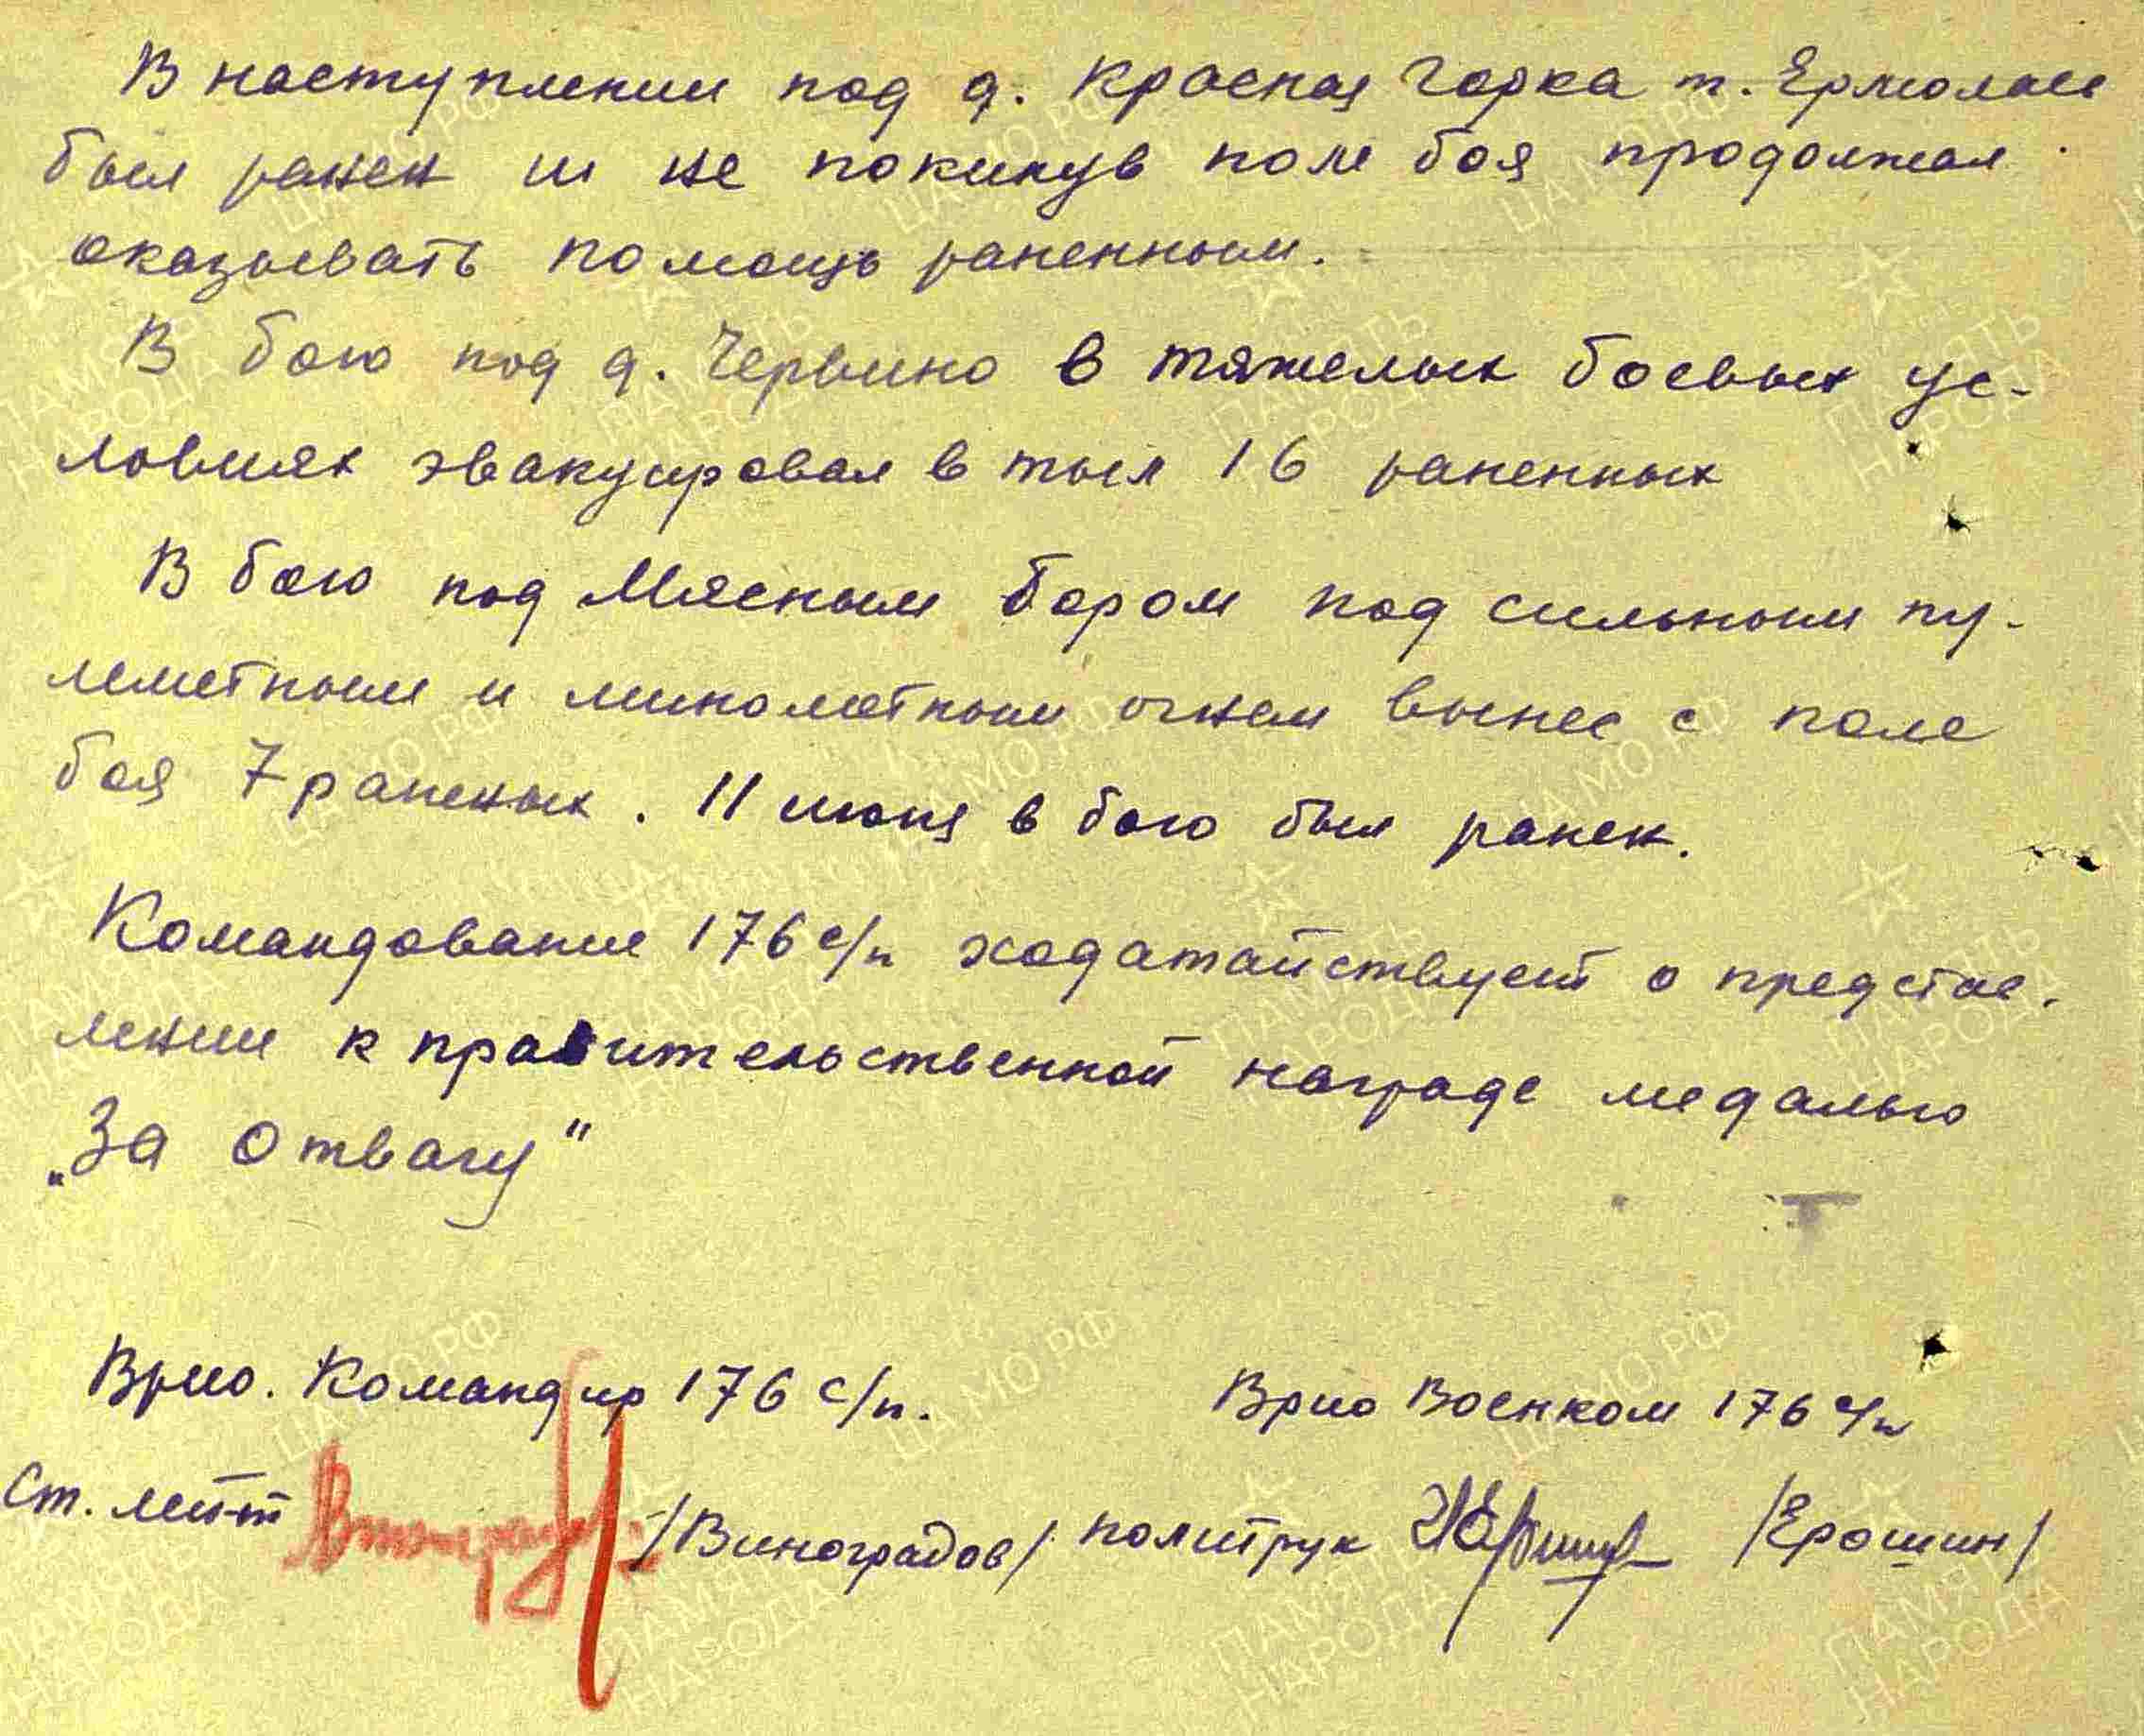 В наступлении под д. Красная Горка т. Ермолаев
был ранен и не покинув поле боя продолжал
оказывать помощь раненным.
В бою под д. Червино в тяжелых боевых ус-
ловиях эвакуировал в тыл 16 раненных
В бою под Мясным Бором под сильным пу-
леметным и минометным огнем вынес с поле
боя 7 раненых. 11 июня в бою был ранен.
Командование 176 с/п ходатайствует о представ-
лении к правительственной награде медалью
„За Отвагу"
Врио. Командир 176 с/п. Врио Военком 176 с/п
Ст. лейт-т /Виноградов/ политрук /Ерошин/